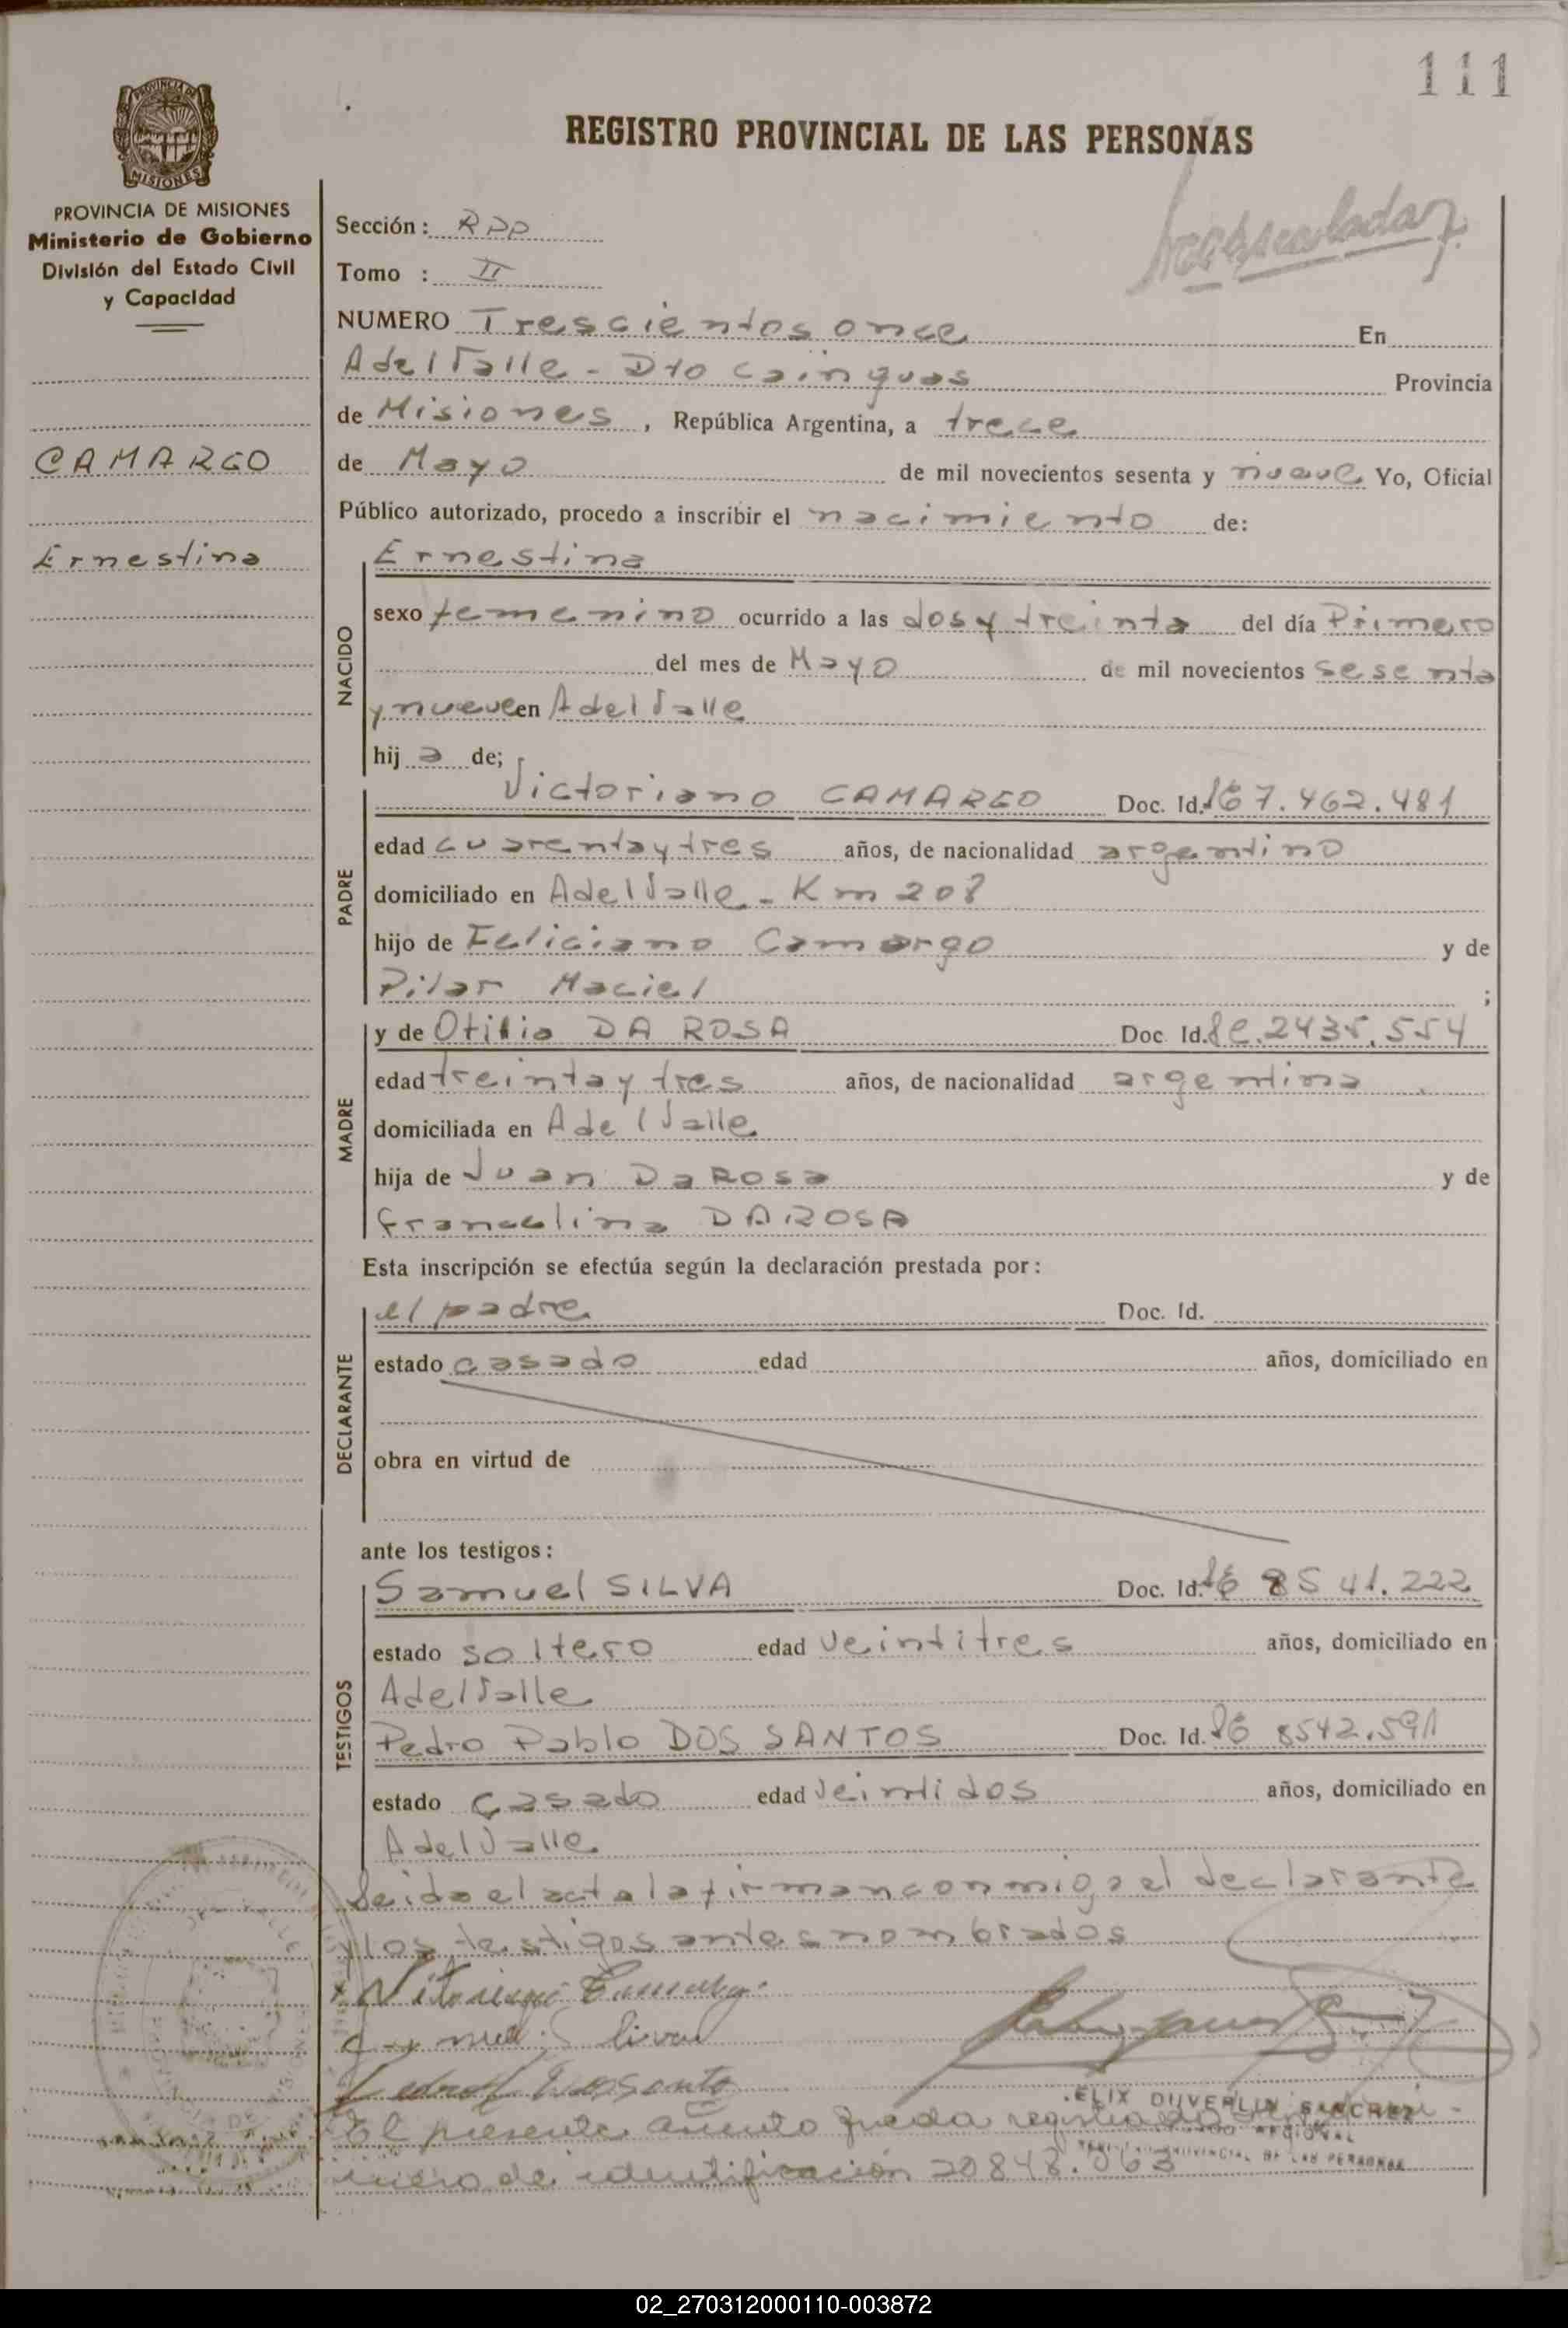 111
REGISTRO PROVINCIAL DE LAS PERSONAS
PROVINCIA DE MISIONES
Ministerio de Gobierno
División del Estado Civil
y Capacidad
CAMARGO
Ernestina
Sección: RPP
Tomo : II
NUMERO Trescientos once En
A del Valle - Dto Cainguas Provincia
de Misiones, República Argentina, a trece
de Mayo de mil novecientos sesenta y nueve Yo, Oficial
Público autorizado, procedo a inscribir el nacimiento de:
NACIDO
Ernestina
sexo femenino ocurrido a las dos y treinta del día Primero
del mes de Mayo de mil novecientos sesenta
y nueve en A del Valle
hij a de;
PADRE
Victoriano CAMARGO Doc. Id. LE 7.462.481
edad cuarenta y tres años, de nacionalidad argentino
domiciliado en A del Valle - Km 208
hijo de Feliciano Camargo y de
Pilar Maciel ;
MADRE
y de Otilia DA ROSA Doc. Id. LC. 2435.554
edad treinta y tres años, de nacionalidad argentina
domiciliada en A del Valle
hija de Juan Da Rosa y de
Francelina DA ROSA
Esta inscripción se efectúa según la declaración prestada por:
DECLARANTE
el padre Doc. Id.
estado casado edad años, domiciliado en
obra en virtud de
ante los testigos:
TESTIGOS
Samuel SILVA Doc. Id. LE 8541.222
estado soltero edad veintitres años, domiciliado en
A del Valle
Pedro Pablo DOS SANTOS Doc. Id. LE 8542.591
estado casado edad veintidos años, domiciliado en
A del Valle
Leida el acta la firman conmigo el declarante
y los testigos antes nombrados
El presente asiento queda registrado
mero de identificación 20848.063
REGISTRO PROVINCIAL DE LAS PERSONAS
02_270312000110-003872